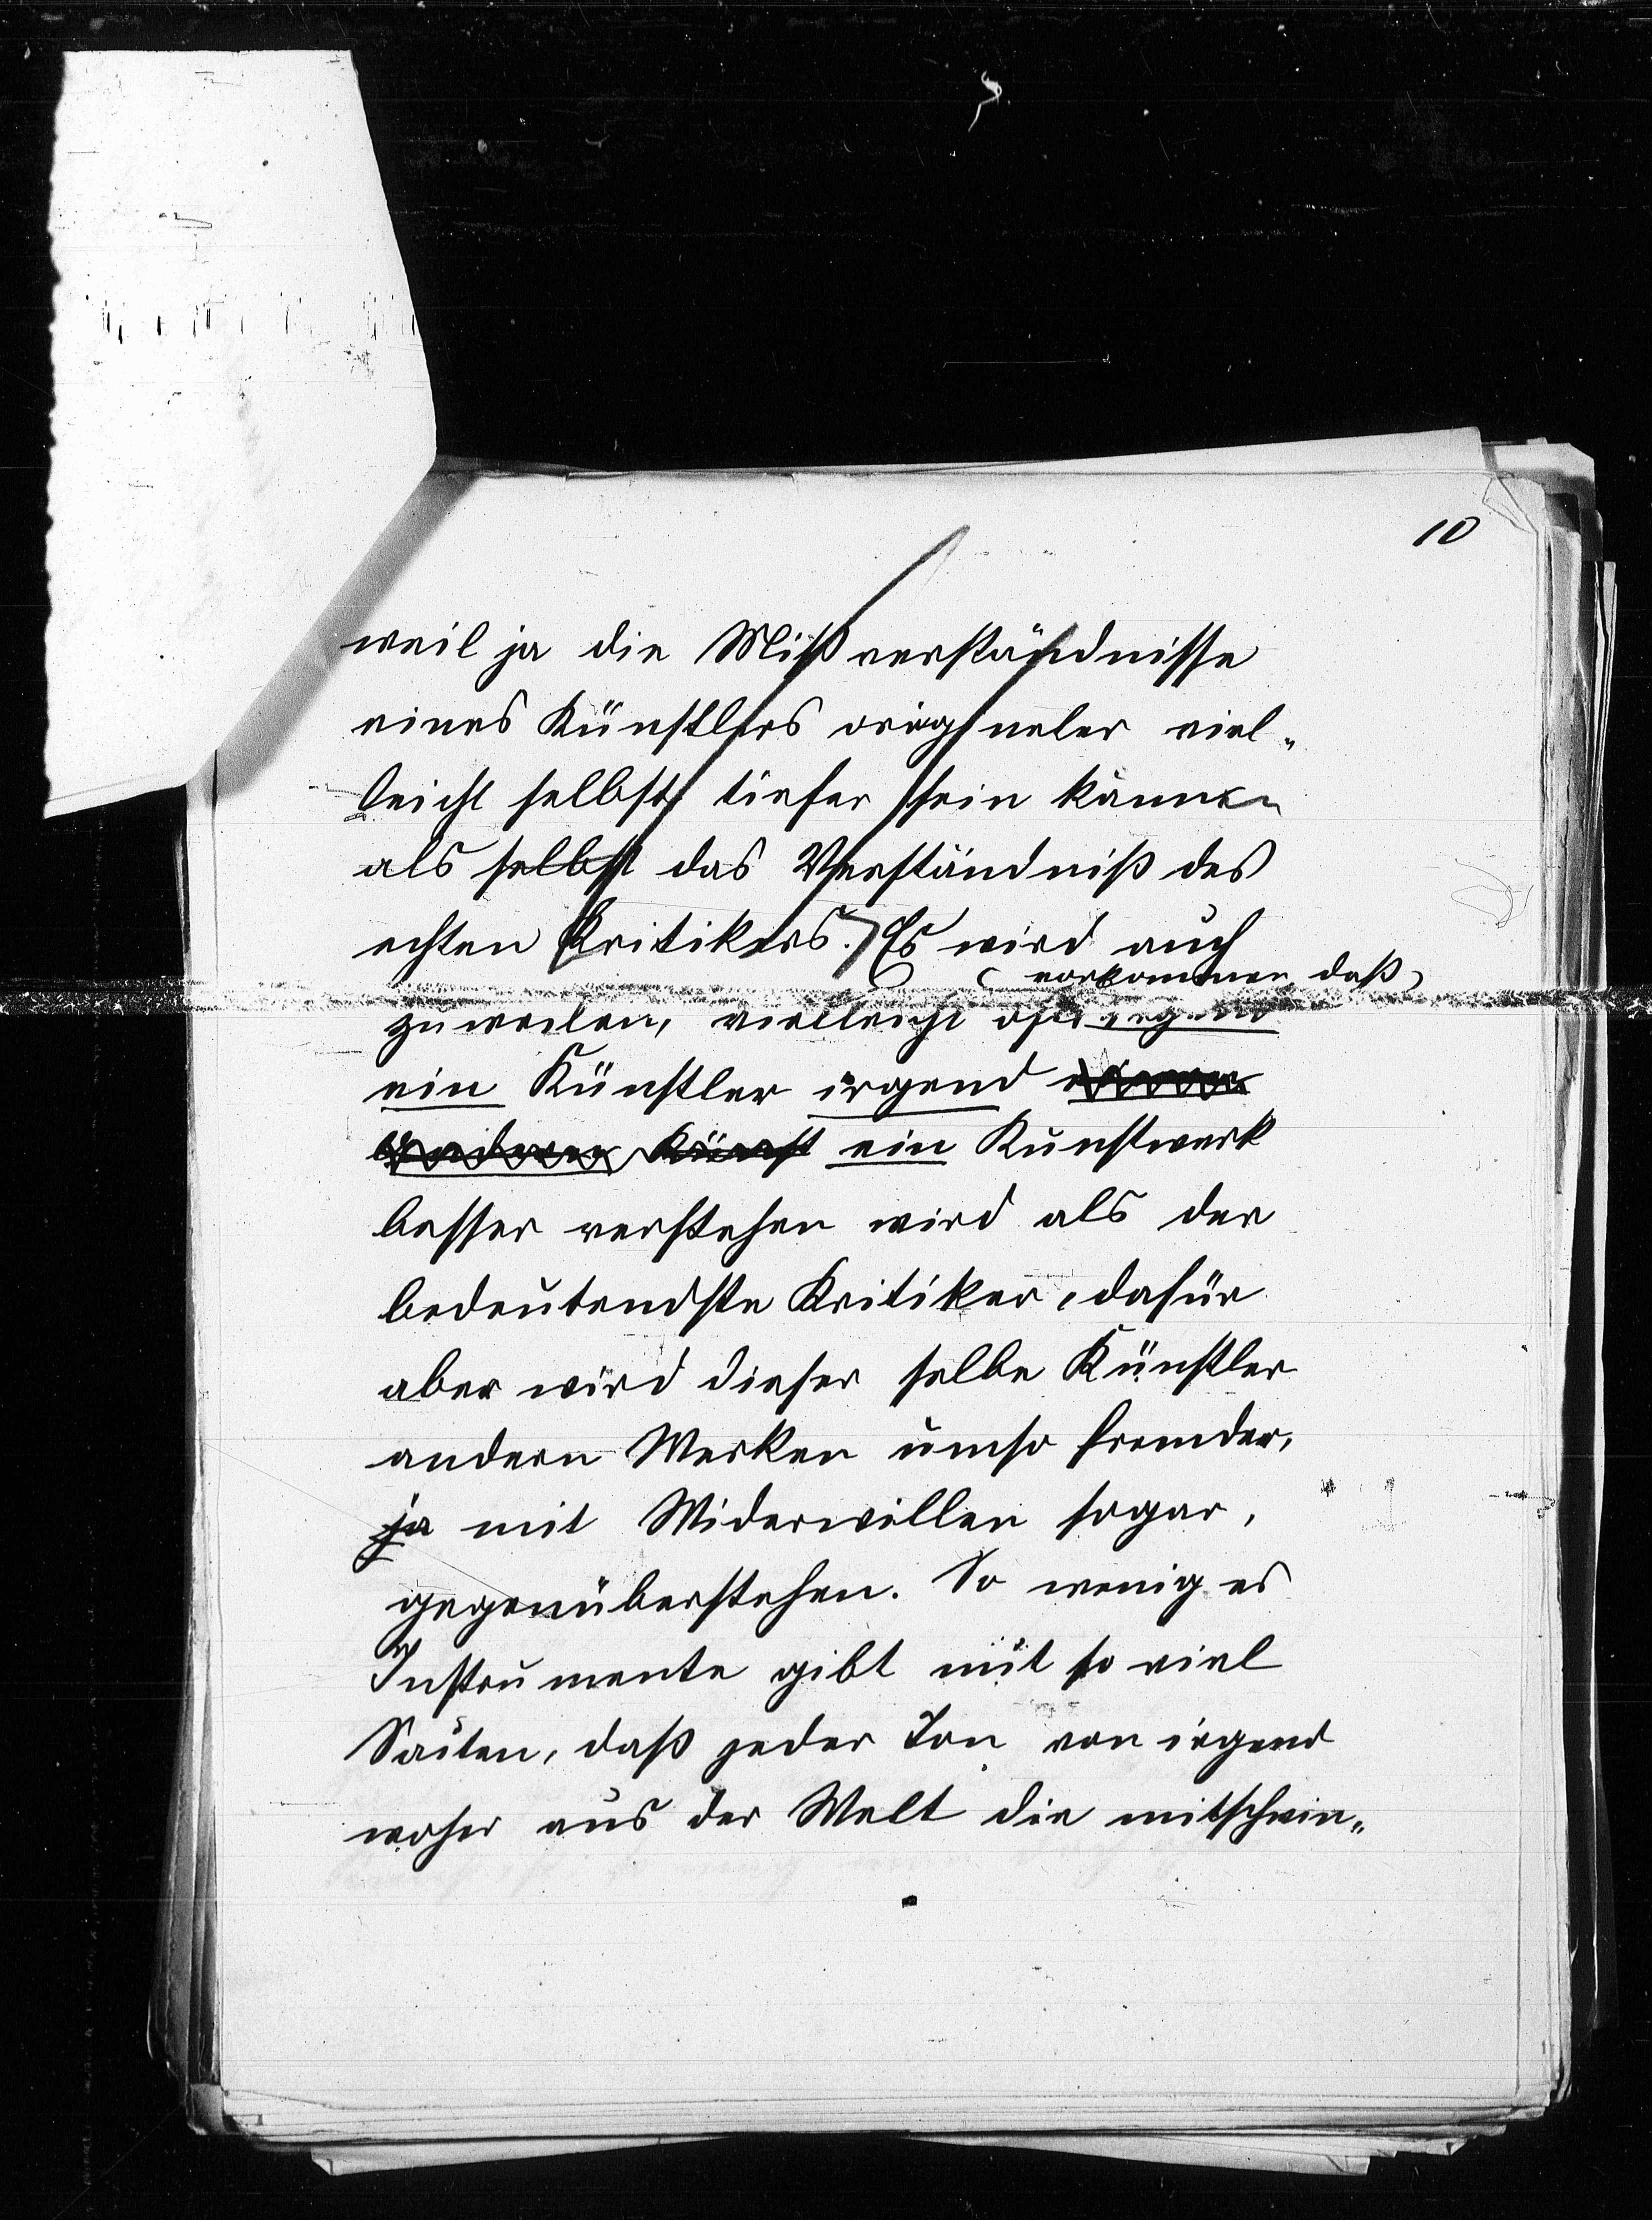 10
weil ja die Mißverständnisse
eines Künstlers origineler viel„
leicht selbst tiefer sein können
als selbst das Verständniß des
echten Kritikers. Es wird auch
vorkommen daß
zuweilen, vielleicht oft irgend
ein Künstler irgend einen
anderen Künst ein Kunstwerk
besser verstehen wird als der
bedeutendste Kritiker, dafür
aber wird dieser selbe Künstler
andern Werken umso fremder,
ja mit Widerwillen sogar,
gegenüberstehen. So wenig es
Instrumente gibt mit so viel
Saiten, daß jeder Ton von irgend
woher aus der Welt die mitschwin„